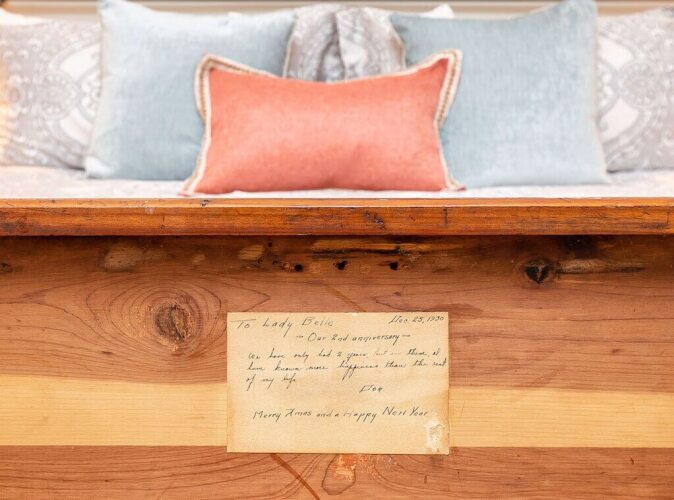 To Lady Belle Dec 25, 1930
- Our 2nd anniversary -
We have only had 2 years but in them I
have known more happiness than the rest
of my life.
Don
Merry Xmas and a Happy New Year